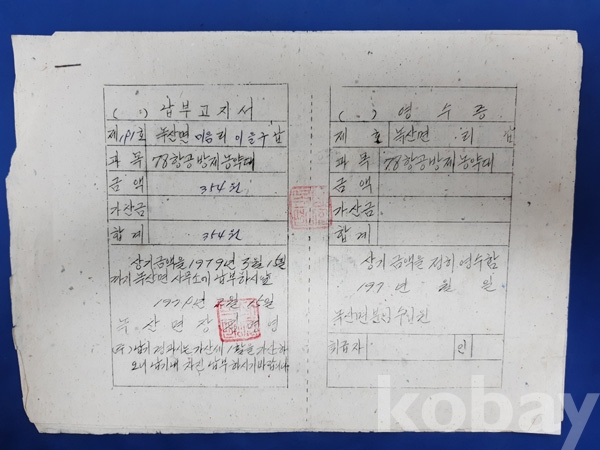 ( . ) 납부고지서
제191호 녹산면 미음리 이을구 남
과목 78항공방제농약대
금액 354원
가산금
합계 354원
상기금액을 1979년 3월 15일
까지 녹산면 사무소에 납부하시압
1979년 월 15일
녹산면장
(주) 납기 경과시는 가산세 1할을 가산하
오니 납기내 차인 납부하시기 바랍니다
( . ) 영수증
제 호 녹산면 리 남
과목 78항공방제농약대
금액
가산금
합계
상기 금액을 정히 영수함
197 년 월 일
녹산면 분임수입원
취급자 인
kobay